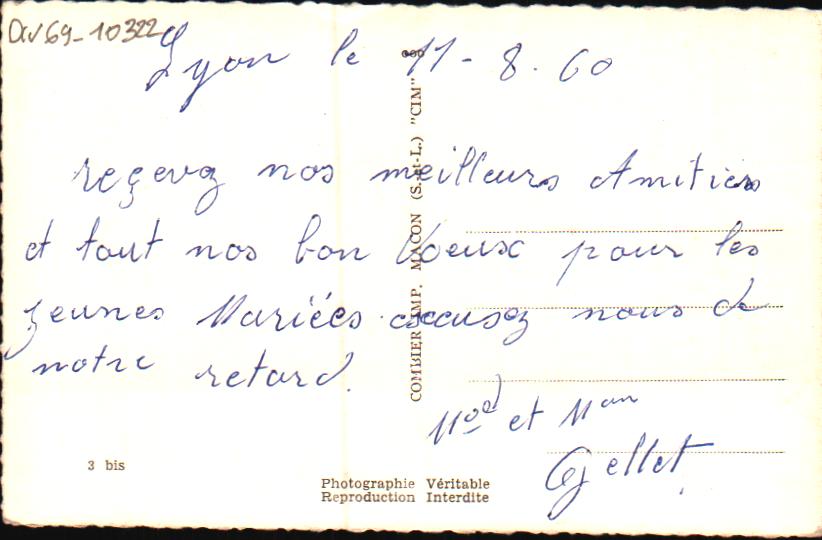 Lyon le 11-8.60
reçevez nos meilleurs Amitiers
et tout nos bon Voeux pour les
jeunes Mariées excusez nous de
notre retard.
et
Gellet
3 bis
Photographie Véritable
Reproduction Interdite
COMBIER IMP. MACON (S.-et-L.) "CIM"